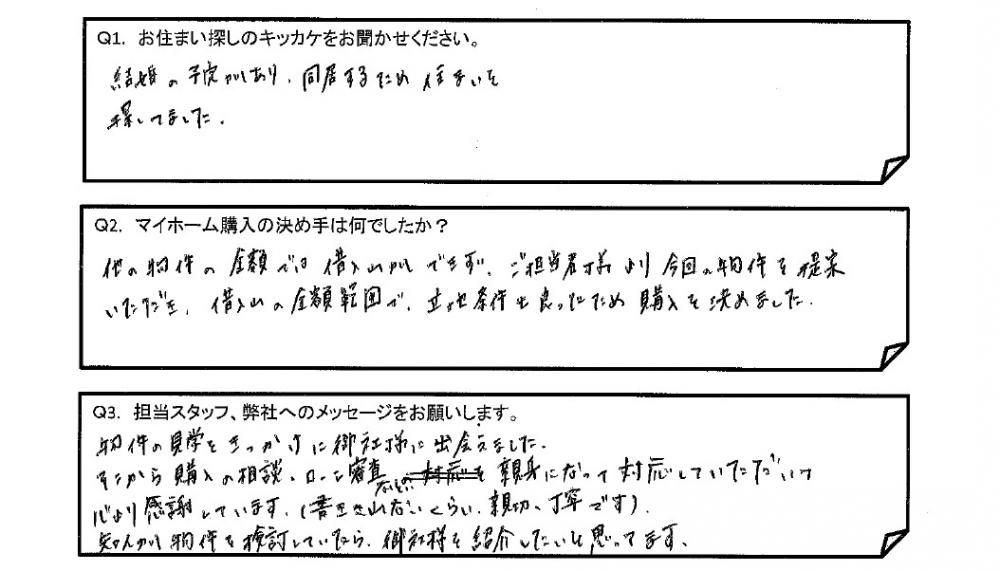 Q1. お住まい探しのキッカケをお聞かせください。
結婚の予定があり、同居するため住まいを
探してました。
Q2. マイホーム購入の決め手は何でしたか？
他の物件の金額では借入れができず、ご担当者様より今回の物件を提案
いただき、借入れの金額範囲で、立地条件も良ったため購入を決めました。
Q3. 担当スタッフ、弊社へのメッセージをお願いします。
物件の見学をきっかけに御社様に出会えました。
そこから購入の相談、ローン審査などの親身になって対応していただいて
心より感謝しています。(書ききれないくらい、親切、丁寧です)。
知人が物件を検討していたら、御社様を紹介したいと思ってます。